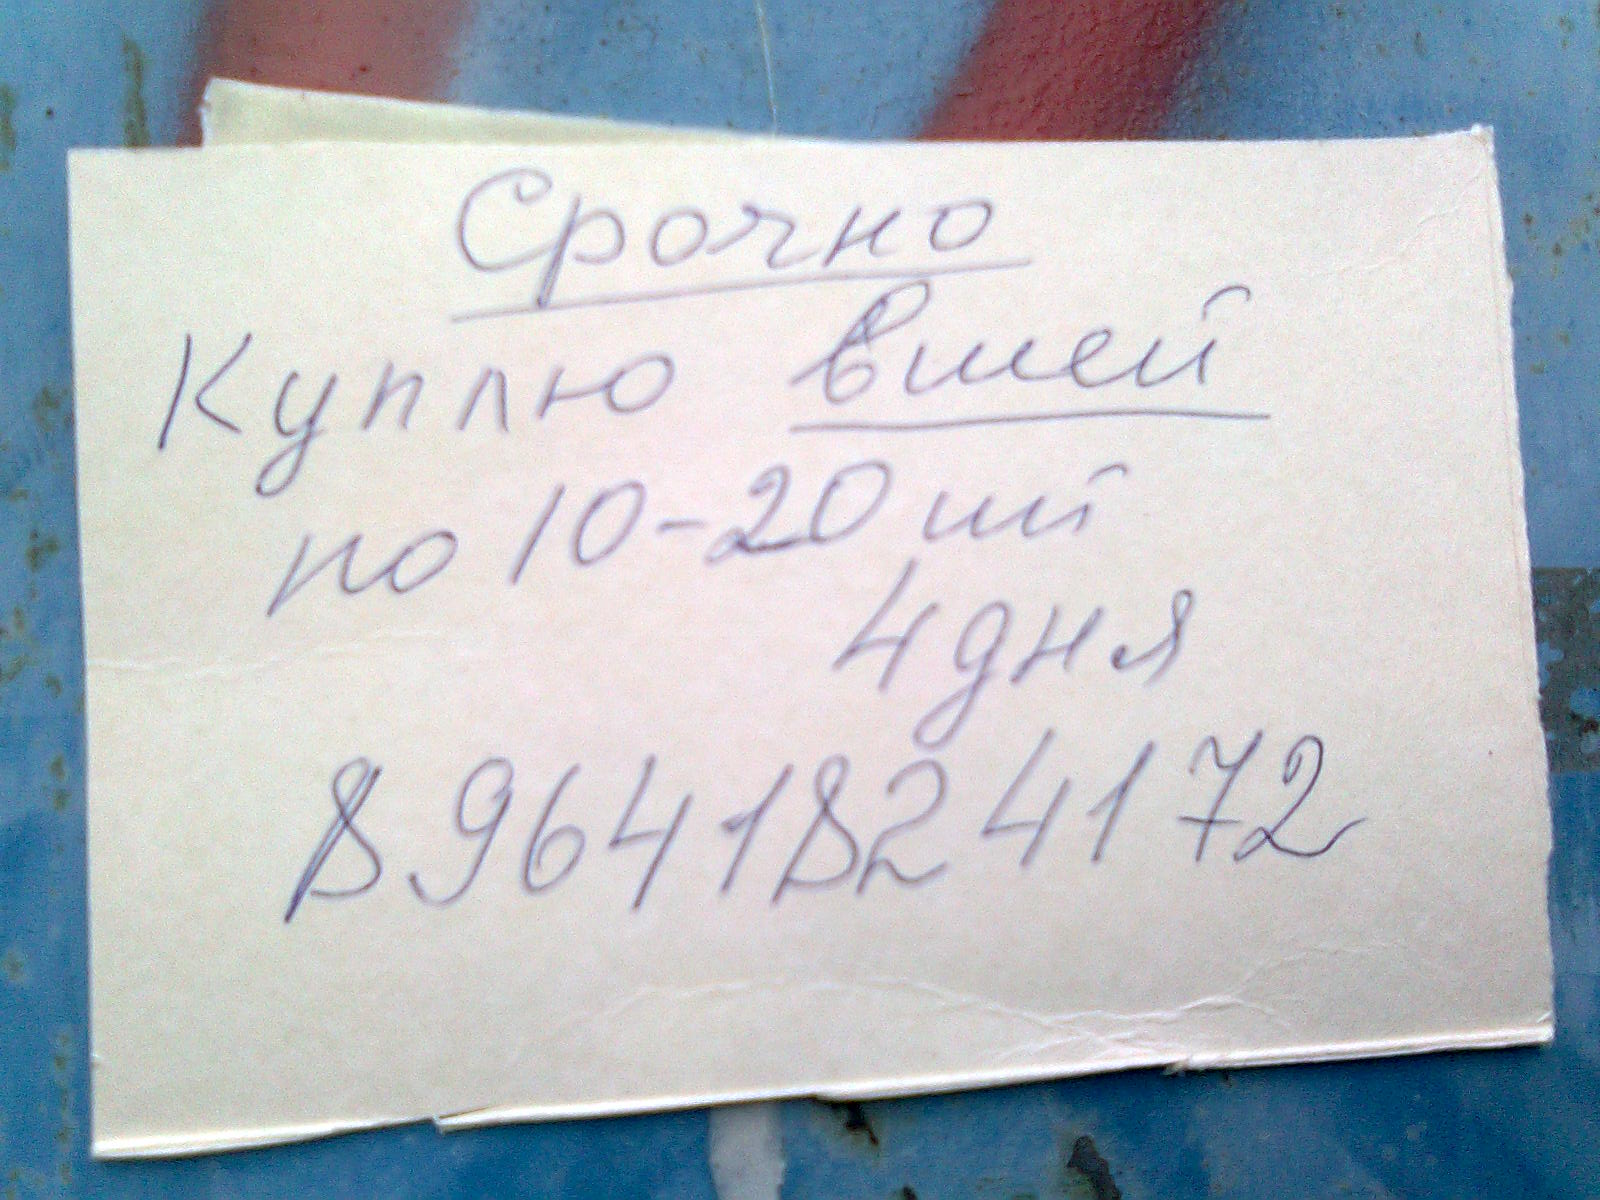 Срочно
Куплю вшей
по 10-20 шт
4 дня
89641824172